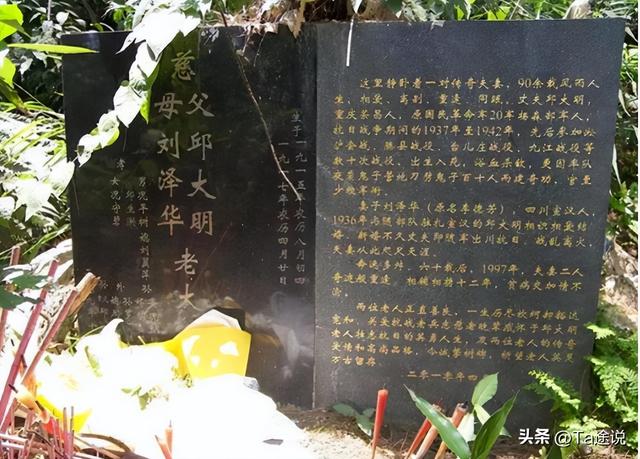 慈父邱大明
母刘泽华 老大
生于一九一五年农历八月初四
一九一七年农历四月廿日
孝
这里静卧着一对传奇夫妻，90余载风雨人
生，相爱、离别、重逢、同眠。丈夫邱大明，
重庆荣昌人，原国民革命军20军杨森部军人，
抗日战争期间的1937年至1942年，先后参加淞
沪会战、滕县战役、台儿庄战役、九江战役等
数十次战役，出生入死，浴血杀敌，更因率队
夜袭鬼子营地刀劈鬼子百十人而建奇功，官至
少校军衔。
妻子刘泽华（原名李德芳），四川宣汉人，
1936年与随部队驻扎宣汉的邱大明相识相爱结
婚，新婚不久丈夫即随军出川抗日，战乱离火，
夫妻从此咫尺天涯。
命运多舛，六十载后，1997年，夫妻二人
奇迹般重逢，相携相扶十二年，贫病交加情不
渝。
两位老人正直善良，一生历尽坎坷却豁达
宽和。关爱抗战老兵志愿者晓草感怀于邱大明
老人壮志抗日的英勇人生，及两位老人的传奇
爱情和高尚品格，今诚挚树碑，祈望老人英灵
万古留存。
二零一零年四
头条 @Ta途说